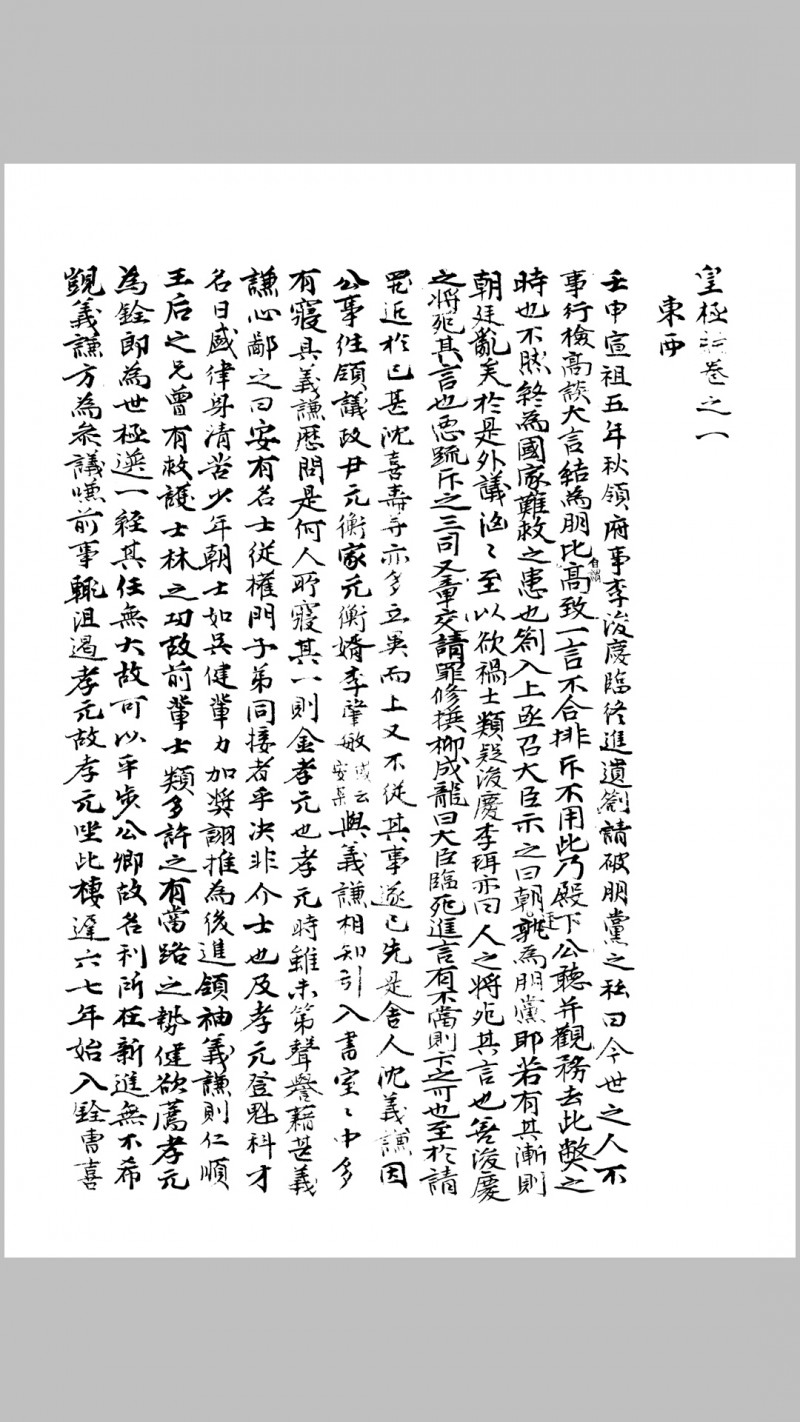 皇極編卷之一
東西
壬申宣祖五年秋領府事李浚慶臨終進遺劄請破朋黨之私曰今世之人不
事行檢高談大言結為朋比自謂高致一言不合排斥不用此乃殿下公聽并觀務去此弊之
時也不然終為國家難救之患也劄入上亟召大臣示之曰朝廷孰為朋黨耶若有其漸則
朝廷亂矣於是外議洶〻至以欲禍士類疑浚慶李珥亦曰人之將死其言也善浚慶
之將死其言也惡疏斥之三司又章交請罪修撰柳成龍曰大臣臨死進言有不當則卞之可也至於請
罪近於已甚沈喜壽等亦多立異而上又不從其事遂已先是舍人沈義謙因
公事徃領議政尹元衡家元衡婿李肇敏或云安景與義謙相知引入書室〻中多
有寢具義謙歷問是何人所寢其一則金孝元也孝元時雖未第聲譽藉甚義
謙心鄙之曰安有名士從權門子弟同接者乎決非介士也及孝元登魁科才
名日盛律身清苦少年朝士如吳健輩力加奬詡推為後進領袖義謙則仁順
王后之兄曾有救護士林之功故前輩士類多許之有當路之勢健欲薦孝元
為銓郎為世極選一經其任無大故可以平步公卿故名利所在新進無不希
覬義謙方為參議嗛前事輒沮遏孝元故孝元坐此棲遲六七年始入銓曹喜